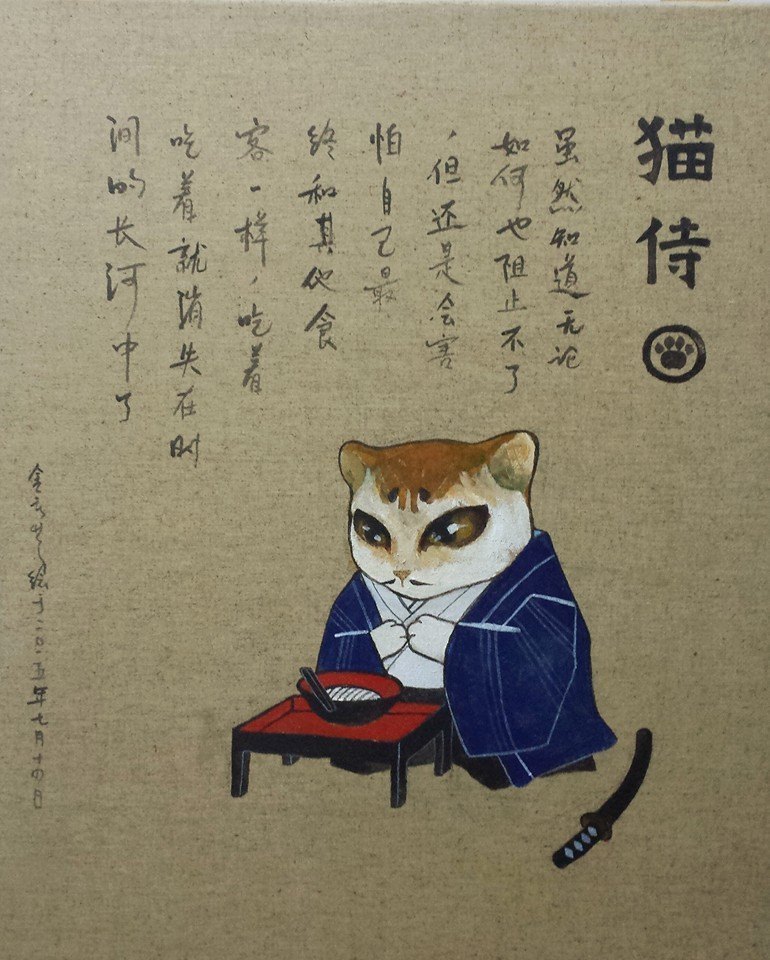 猫侍
虽然知道无论
如何也阻止不了
，但还是会害
怕自己最
终和其他食
客一样，吃着
吃着就消失在时
间的长河中了
绘于二〇一五年七月十四日